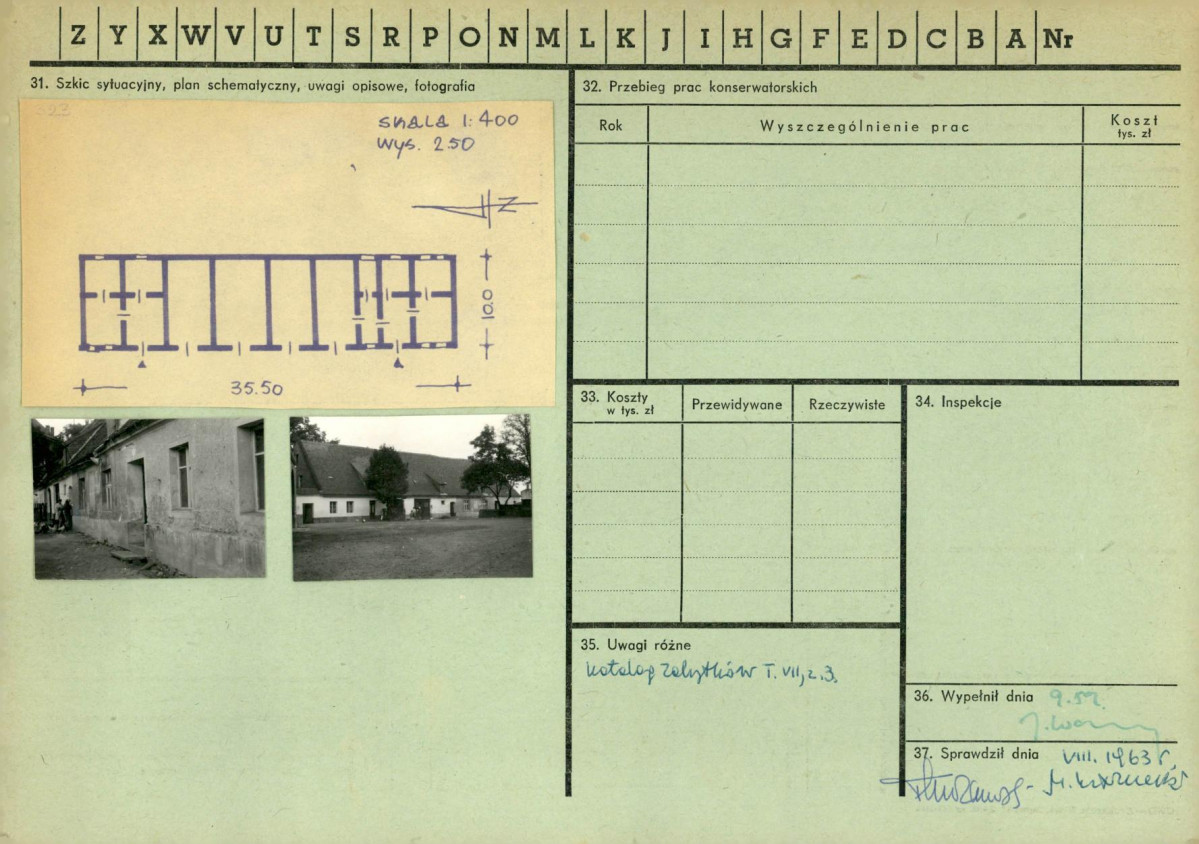 Z Y X W V U T S R P O N M L K J I H G F E D C B A Nr
31. Szkic sytuacyjny, plan schematyczny, uwagi opisowe, fotografia
SKALA 1:400
Wys. 2.50
N
10.0
35.50
32. Przebieg prac konserwatorskich
Rok
Wyszczególnienie prac
Koszt
tys. zł
33. Koszty
w tys. zł
Przewidywane
Rzeczywiste
34. Inspekcje
35. Uwagi różne
Katalog Zabytków T. VII, z. 3.
36. Wypełnił dnia
37. Sprawdził dnia VIII. 1963 r.